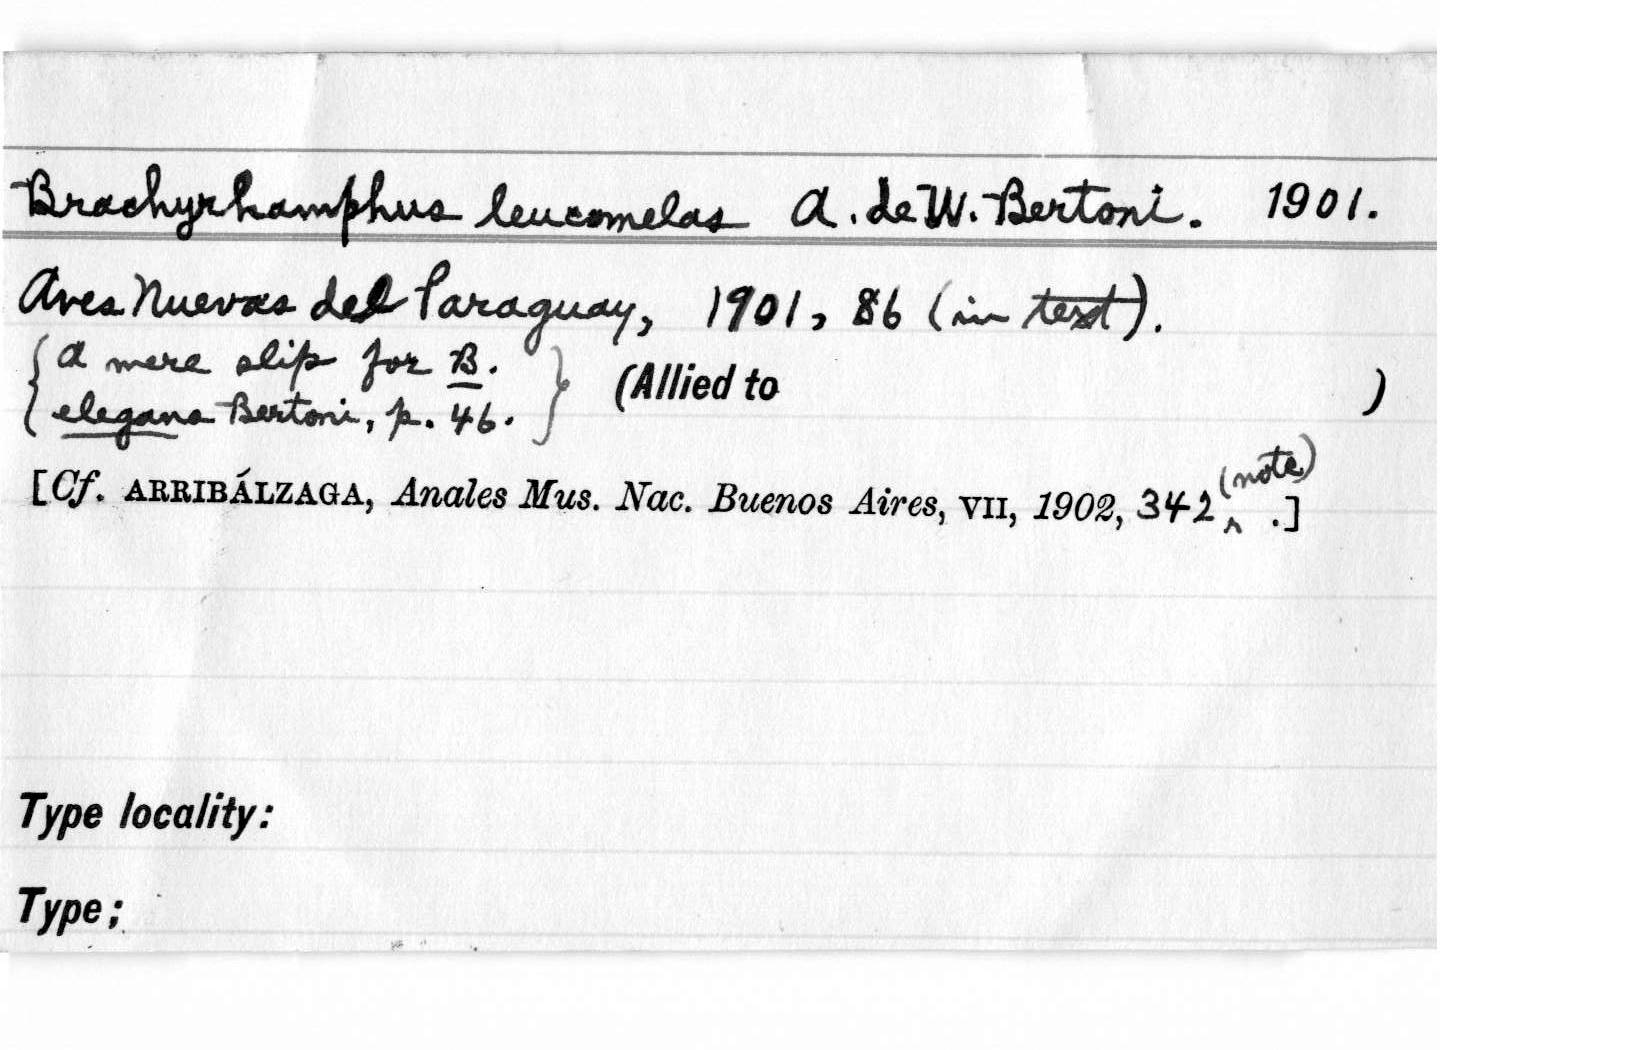 Brachyrhamphus leucomelas A. de W. Bertoni. 1901.
Aves Nuevas del Paraguay, 1901, 86 (in text).
{ A mere slip for B.
elegans Bertoni, p. 46. } (Allied to )
[Cf. ARRIBÁLZAGA, Anales Mus. Nac. Buenos Aires, VII, 1902, 342 ^ (note) .]
Type locality:
Type: